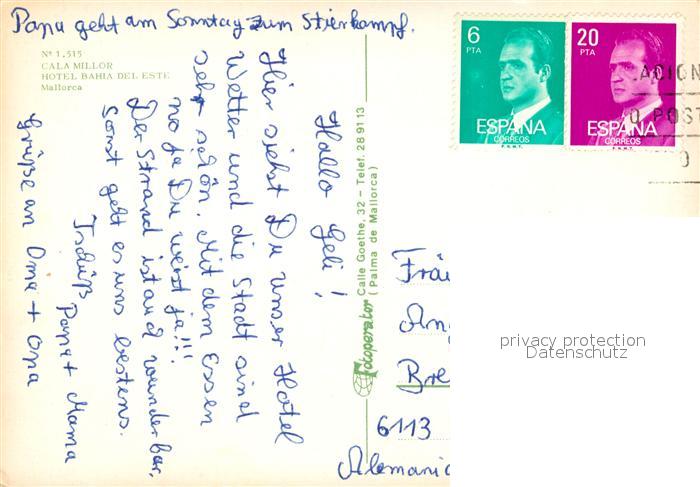 Papa geht am Sonntag zum Stierkampf.
Nº 1.515
CALA MILLOR
HOTEL BAHIA DEL ESTE
Mallorca
Hallo Geli!
Hier siehst Du unser Hotel
Wetter und die Stadt sind
sehr schön. Mit dem Essen
na ja Du weist ja!!!
Der Strand ist auch wunderbar,
sonst geht es uns bestens.
Tschüß
Papa + Mama
Grüße an Oma + Opa
Fotoperator Calle Goethe, 32 – Telef. 28 91 13
(Palma de Mallorca)
6
PTA
ESPAÑA
CORREOS
F.N.M.T.
20
PTA
ESPAÑA
CORREOS
F.N.M.T.
ACION
O POST
Fräu
Ang
Bre
6113
Alemania
privacy protection
Datenschutz